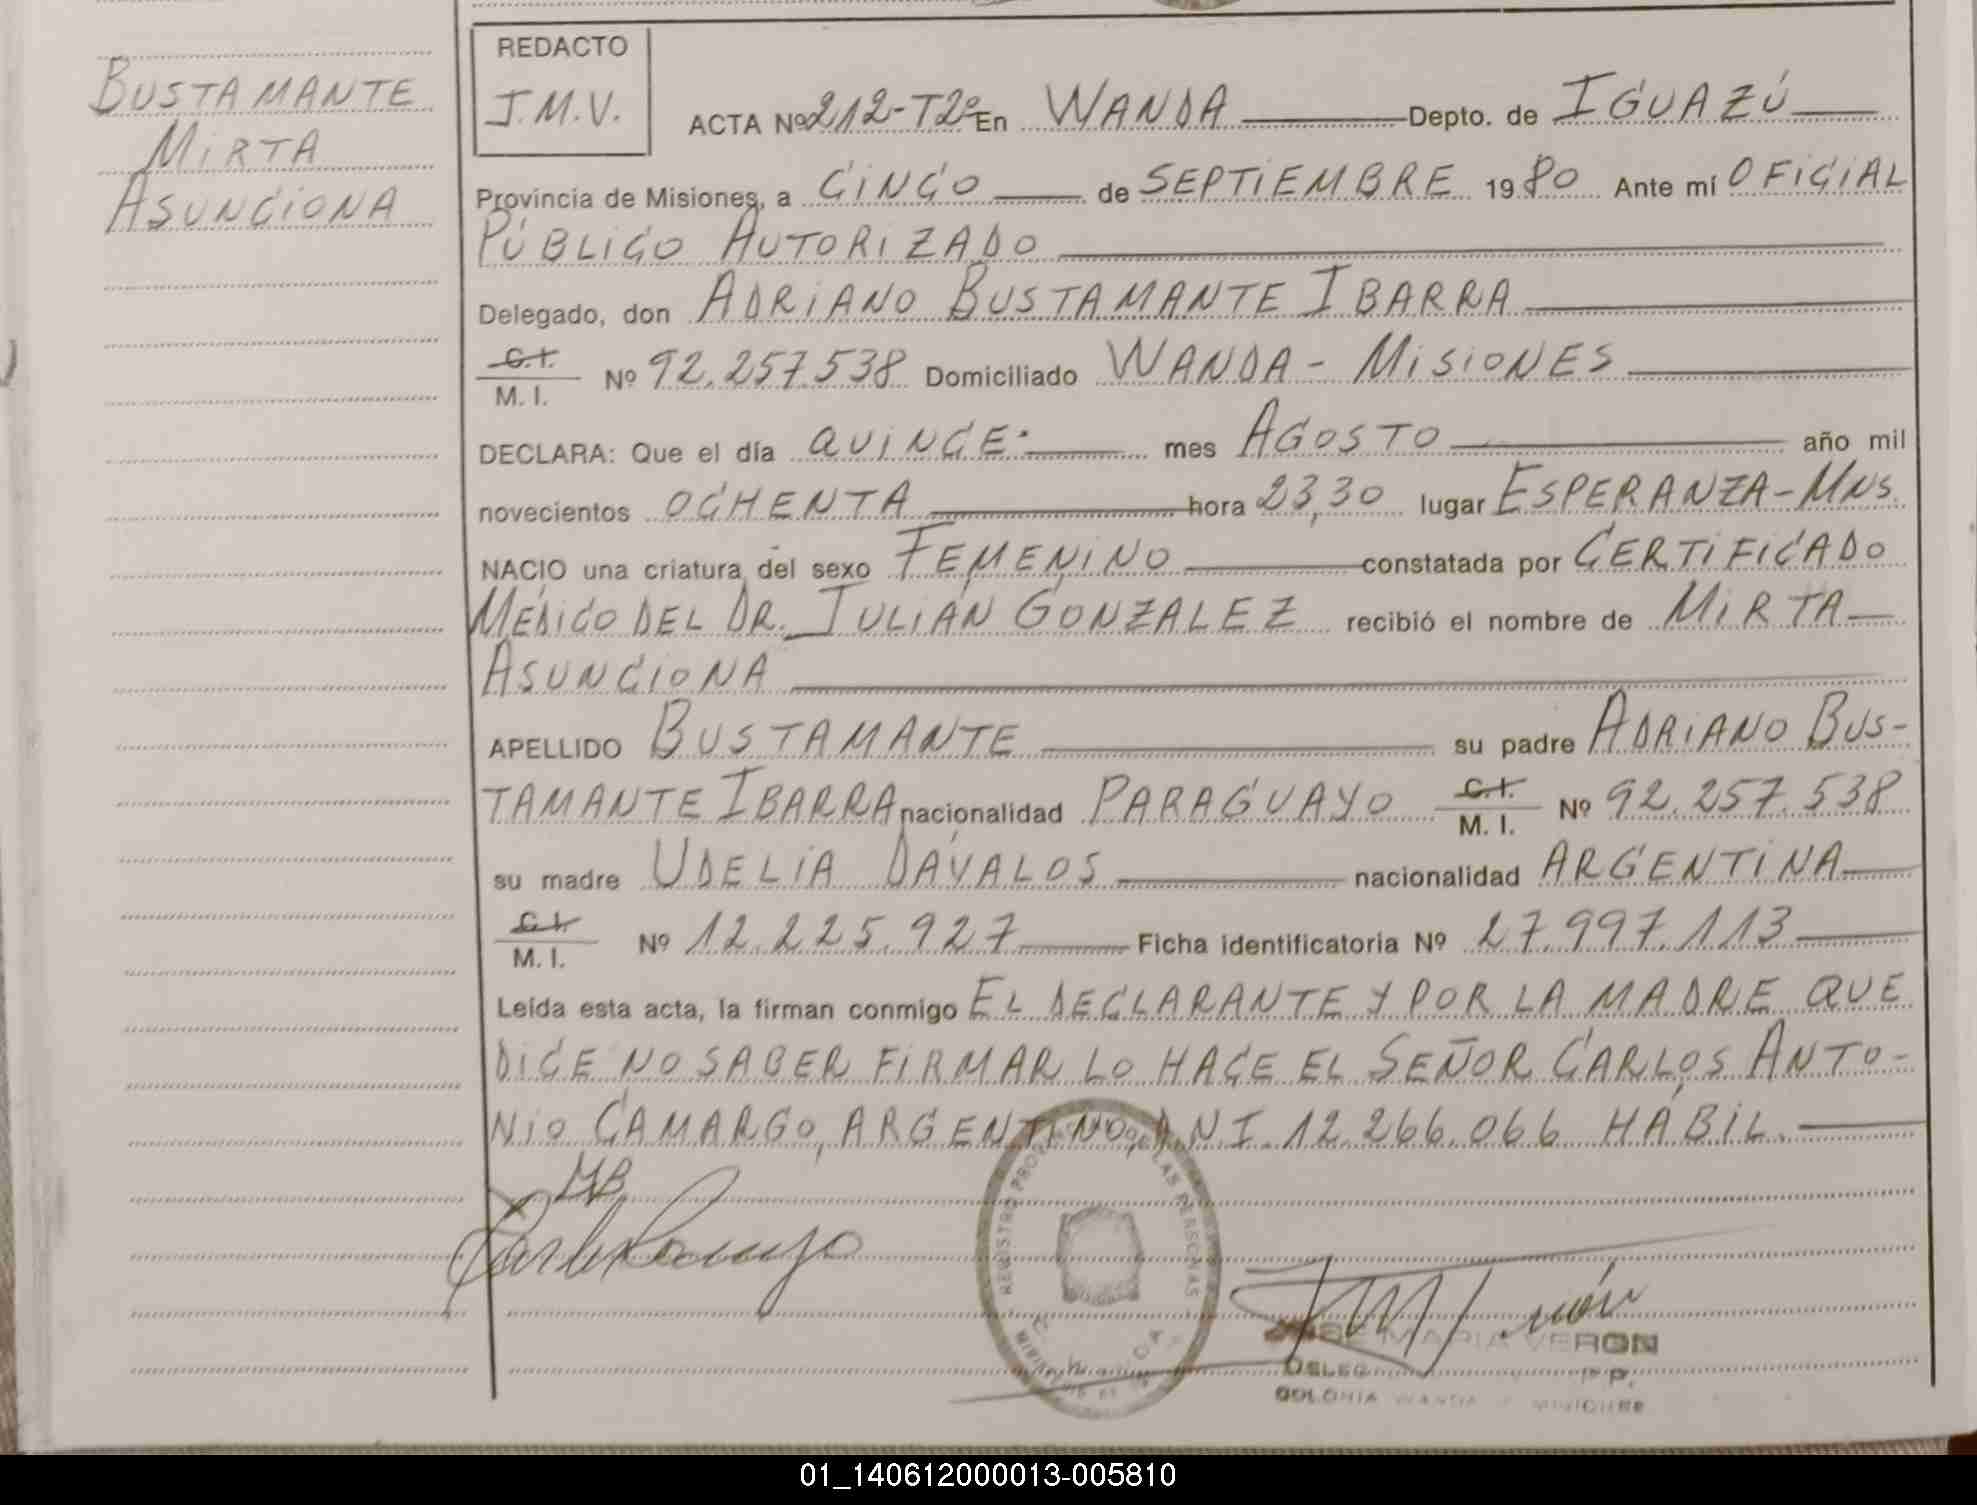 BUSTAMANTE
MIRTA
ASUNCIONA
REDACTO
J.M.V.
ACTA Nº 212-T2º En WANDA Depto. de IGUAZÚ
Provincia de Misiones, a CINCO de SEPTIEMBRE 1980 Ante mí OFICIAL
PÚBLICO AUTORIZADO
Delegado, don ADRIANO BUSTAMANTE IBARRA
C.I.
M. I. Nº 92.257.538 Domiciliado WANDA - MISIONES
DECLARA: Que el día QUINCE mes AGOSTO año mil
novecientos OCHENTA hora 23,30 lugar ESPERANZA - MNS.
NACIO una criatura del sexo FEMENINO constatada por CERTIFICADO
MÉDICO DEL DR. JULIÁN GONZALEZ recibió el nombre de MIRTA
ASUNCIONA
APELLIDO BUSTAMANTE su padre ADRIANO BUS-
TAMANTE IBARRA nacionalidad PARAGUAYO C.I. M. I. Nº 92.257.538
su madre UDELIA DÁVALOS nacionalidad ARGENTINA
C.I.
M. I. Nº 12.225.927 Ficha identificatoria Nº 27.997.113
Leída esta acta, la firman conmigo EL DECLARANTE Y POR LA MADRE QUE
DICE NO SABER FIRMAR LO HACE EL SEÑOR CARLOS ANTO-
NIO CAMARGO, ARGENTINO, D.N.I. 12.266.066 HÁBIL.
REGISTRO PROVINCIAL DE LAS PERSONAS
JOSE MARIA VERON
DELEG P.
COLONIA WANDA MISIONES
01_140612000013-005810